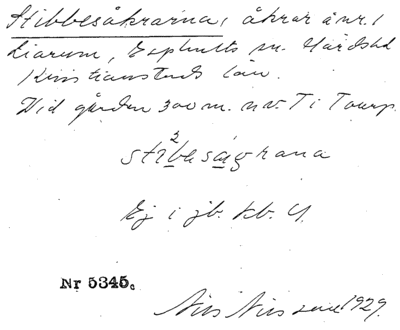 Stibbesåkrarna, åkrar å nr. 1
Liarum, Esphults sn. Gärds hd
Kristianstads län.
Vid gården 300 m. nv. T i Tourp.
stibesågrana
2
Ej i jb. kb. U.
Nr 5345.
Nils Nilsson 1929.